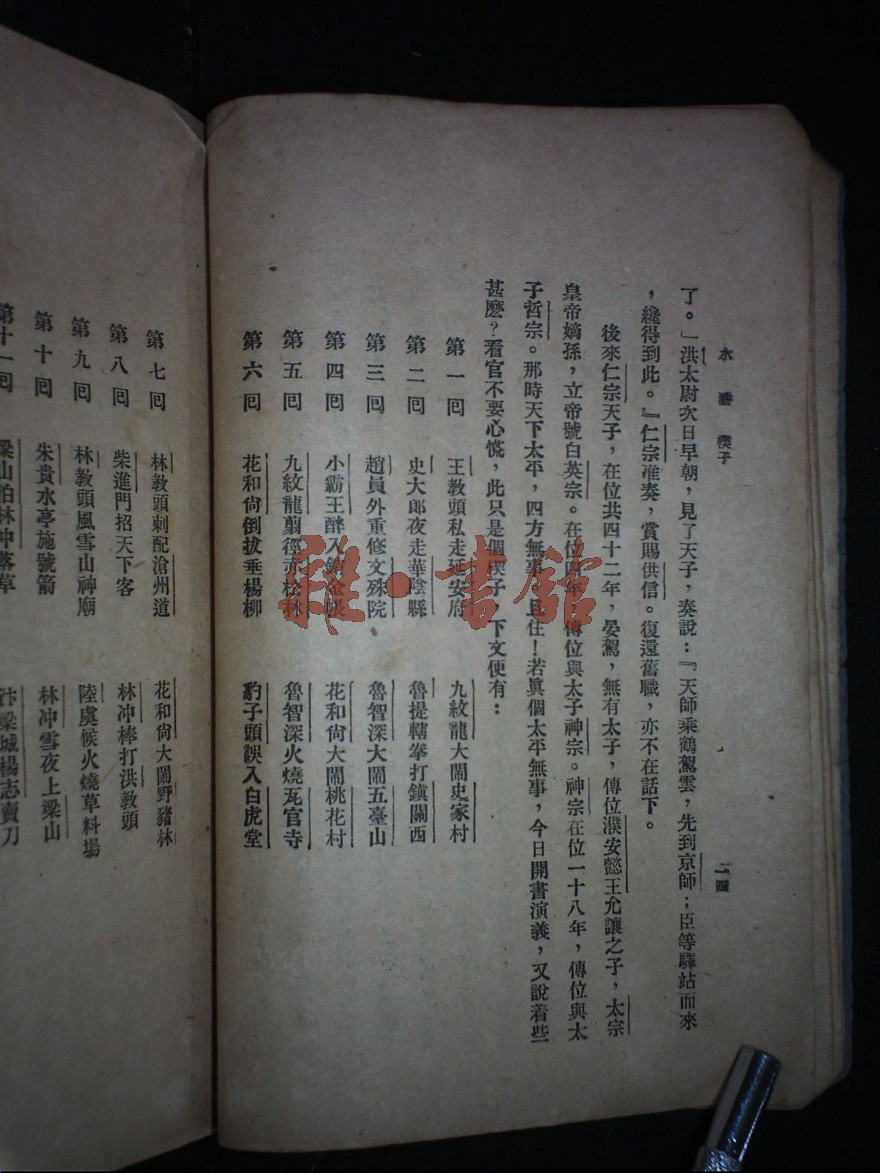 水滸 楔子
二四
了。」洪太尉次日早朝，見了天子，奏說：『天師乘鶴駕雲，先到京師；臣等驛站而來
，纔得到此。』仁宗准奏，賞賜洪信。復還舊職，亦不在話下。
後來仁宗天子，在位共四十二年，晏駕，無有太子，傳位濮安懿王允讓之子，太宗
皇帝嫡孫，立帝號曰英宗。在位四年，傳位與太子神宗。神宗在位一十八年，傳位與太
子哲宗。那時天下太平，四方無事。且住！若眞個太平無事，今日開書演義，又說着些
甚麽？看官不要心慌，此只是個楔子，下文便有：
第一囘 王教頭私走延安府 九紋龍大鬧史家村
第二囘 史大郎夜走華陰縣 魯提轄拳打鎭關西
第三囘 趙員外重修文殊院 魯智深大鬧五臺山
第四囘 小霸王醉入銷金帳 花和尙大鬧桃花村
第五囘 九紋龍翦徑赤松林 魯智深火燒瓦官寺
第六囘 花和尙倒拔垂楊柳 豹子頭誤入白虎堂
第七囘 林教頭刺配滄州道 花和尙大鬧野豬林
第八囘 柴進門招天下客 林冲棒打洪教頭
第九囘 林教頭風雪山神廟 陸虞候火燒草料場
第十囘 朱貴水亭施號箭 林冲雪夜上梁山
第十一囘 梁山泊林冲落草 汴梁城楊志賣刀
雅·書館